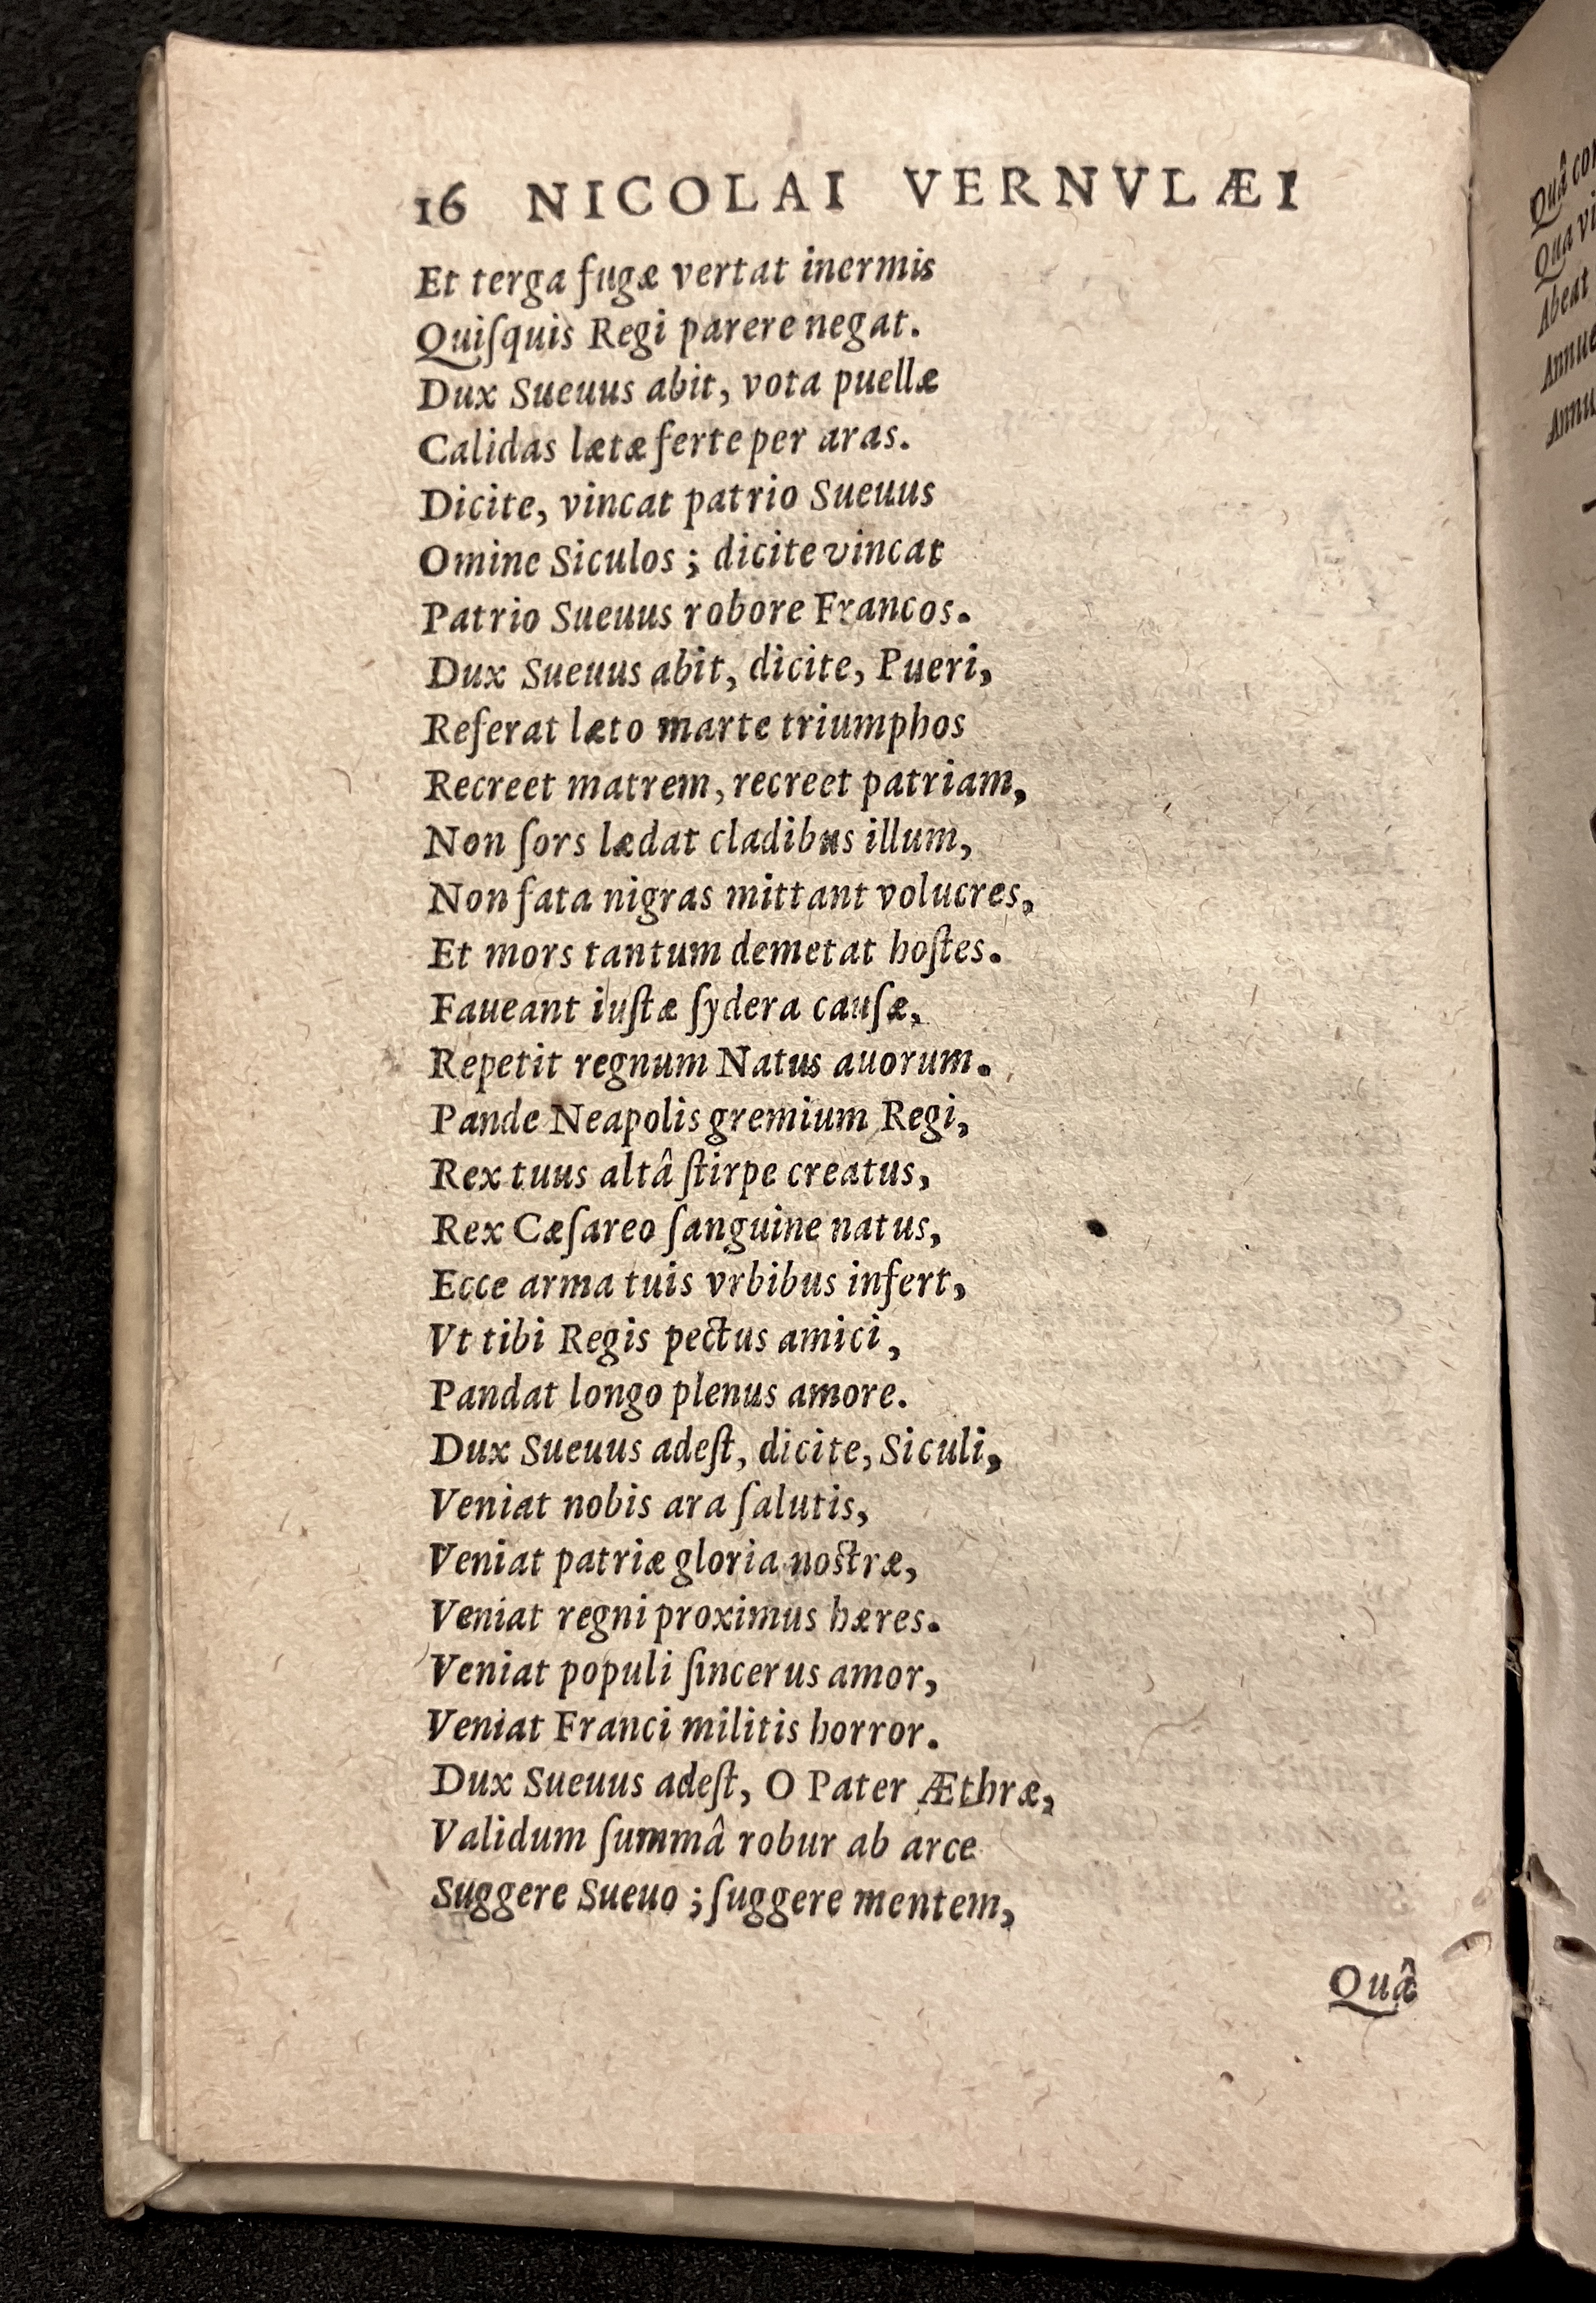 16 NICOLAI VERNVLÆI
Et terga fugæ vertat inermis
Quiſquis Regi parere negat.
Dux Sueuus abit, vota puellæ
Calidas lætæ ferte per aras.
Dicite, vincat patrio Sueuus
Omine Siculos ; dicite vincat
Patrio Sueuus robore Francos.
Dux Sueuus abit, dicite, Pueri,
Referat læto marte triumphos
Recreet matrem, recreet patriam,
Non ſors lædat cladibus illum,
Non fata nigras mittant volucres,
Et mors tantum demetat hoſtes.
Faueant iuſtæ ſydera cauſæ,
Repetit regnum Natus auorum.
Pande Neapolis gremium Regi,
Rex tuus altâ ſtirpe creatus,
Rex Cæſareo ſanguine natus,
Ecce arma tuis vrbibus infert,
Vt tibi Regis pectus amici,
Pandat longo plenus amore.
Dux Sueuus adeſt, dicite, Siculi,
Veniat nobis ara ſalutis,
Veniat patriæ gloria noſtræ,
Veniat regni proximus hæres.
Veniat populi ſincerus amor,
Veniat Franci militis horror.
Dux Sueuus adeſt, O Pater Æthræ,
Validum ſummâ robur ab arce
Suggere Sueuo ; ſuggere mentem,
Quâ
Quâ
Qua
Abeat